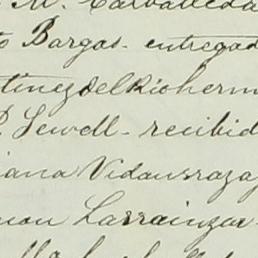 M. Carballeda
Bargas - entregad
tinez del Rio herm
P. Sewell - recibid
iana Vidaurrazag
Larrainzar